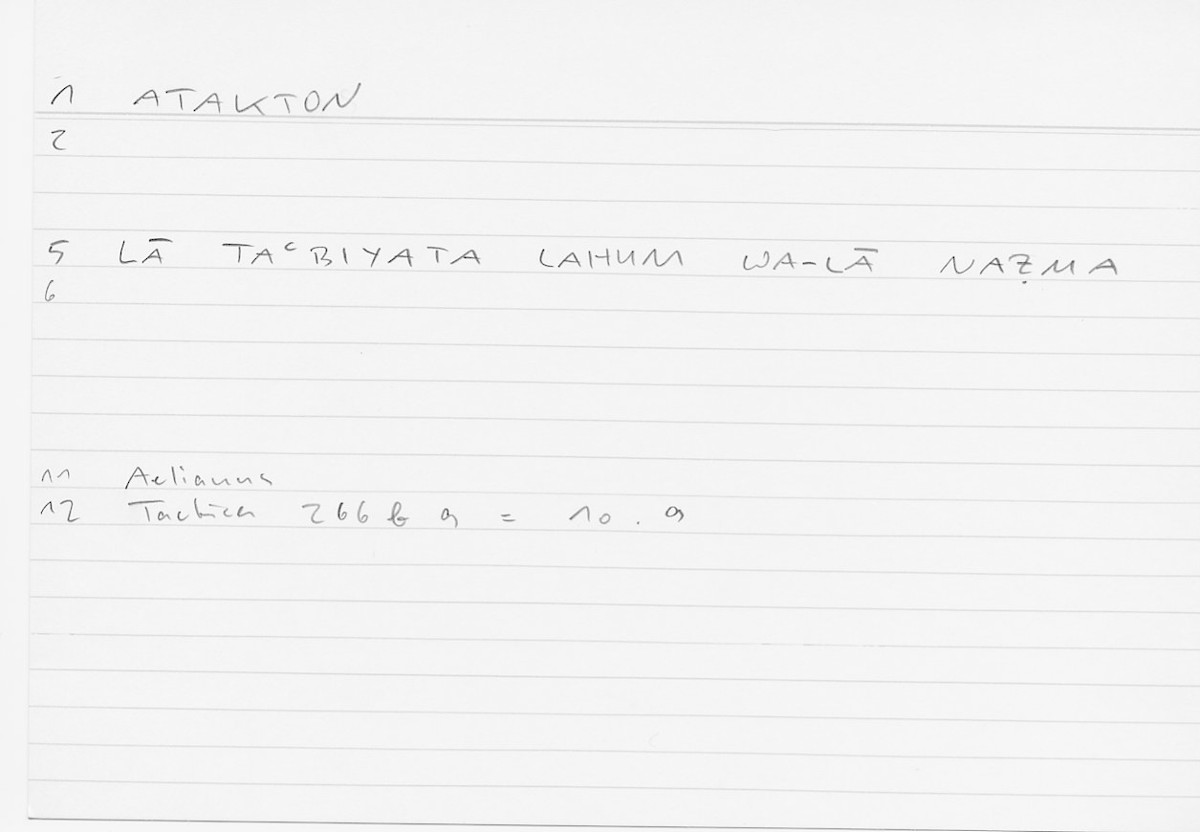 1 ATAKTON
2
5 LĀ TAʿBIYATA LAHUM WA-LĀ NAẒMA
6
11 Aelianus
12 Tactica 266 b 9 = 10.9